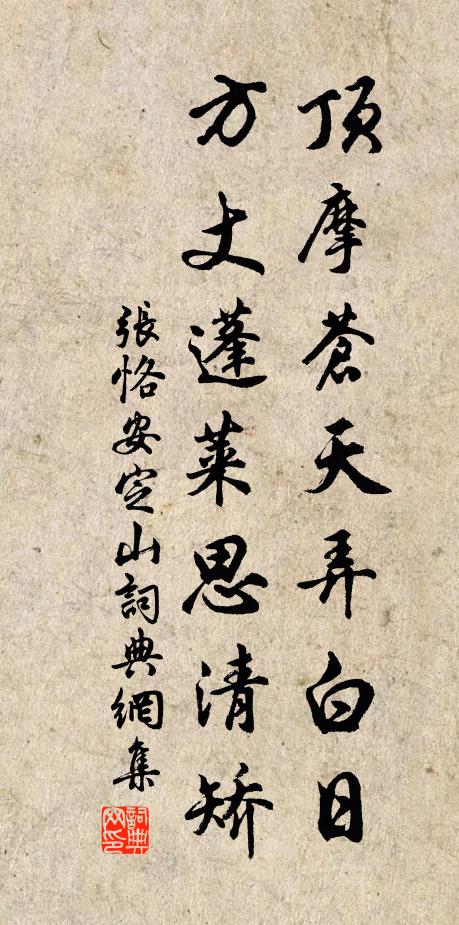 頂摩蒼天弄白日
方丈蓬萊思清矯
張恪安定山詞典網集
詞典网印